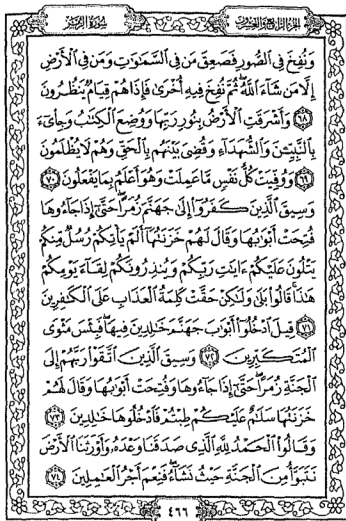 الجزء الرابع والعشرون
سورة الزمر
وَنُفِخَ فِي الصُّورِ فَصَعِقَ مَن فِي السَّمَٰوَٰتِ وَمَن فِي الْأَرْضِ
إِلَّا مَن شَآءَ اللَّهُ ثُمَّ نُفِخَ فِيهِ أُخْرَىٰ فَإِذَا هُمْ قِيَامٌ يَنظُرُونَ
٦٨ وَأَشْرَقَتِ الْأَرْضُ بِنُورِ رَبِّهَا وَوُضِعَ الْكِتَٰبُ وَجِا۟ىٓءَ
بِالنَّبِيِّۦنَ وَالشُّهَدَآءِ وَقُضِيَ بَيْنَهُم بِالْحَقِّ وَهُمْ لَا يُظْلَمُونَ
٦٩ وَوُفِّيَتْ كُلُّ نَفْسٍ مَّا عَمِلَتْ وَهُوَ أَعْلَمُ بِمَا يَفْعَلُونَ ٧٠
وَسِيقَ الَّذِينَ كَفَرُوٓا إِلَىٰ جَهَنَّمَ زُمَرًا حَتَّىٰٓ إِذَا جَآءُوهَا
فُتِحَتْ أَبْوَٰبُهَا وَقَالَ لَهُمْ خَزَنَتُهَآ أَلَمْ يَأْتِكُمْ رُسُلٌ مِّنكُمْ
يَتْلُونَ عَلَيْكُمْ ءَايَٰتِ رَبِّكُمْ وَيُنذِرُونَكُمْ لِقَآءَ يَوْمِكُمْ
هَٰذَا قَالُوا بَلَىٰ وَلَٰكِنْ حَقَّتْ كَلِمَةُ الْعَذَابِ عَلَى الْكَٰفِرِينَ
٧١ قِيلَ ادْخُلُوٓا أَبْوَٰبَ جَهَنَّمَ خَٰلِدِينَ فِيهَا فَبِئْسَ مَثْوَى
الْمُتَكَبِّرِينَ ٧٢ وَسِيقَ الَّذِينَ اتَّقَوْا رَبَّهُمْ إِلَى
الْجَنَّةِ زُمَرًا حَتَّىٰٓ إِذَا جَآءُوهَا وَفُتِحَتْ أَبْوَٰبُهَا وَقَالَ لَهُمْ
خَزَنَتُهَا سَلَٰمٌ عَلَيْكُمْ طِبْتُمْ فَادْخُلُوهَا خَٰلِدِينَ ٧٣
وَقَالُوا الْحَمْدُ لِلَّهِ الَّذِي صَدَقَنَا وَعْدَهُ وَأَوْرَثَنَا الْأَرْضَ
نَتَبَوَّأُ مِنَ الْجَنَّةِ حَيْثُ نَشَآءُ فَنِعْمَ أَجْرُ الْعَٰمِلِينَ ٧٤
٤٦٦